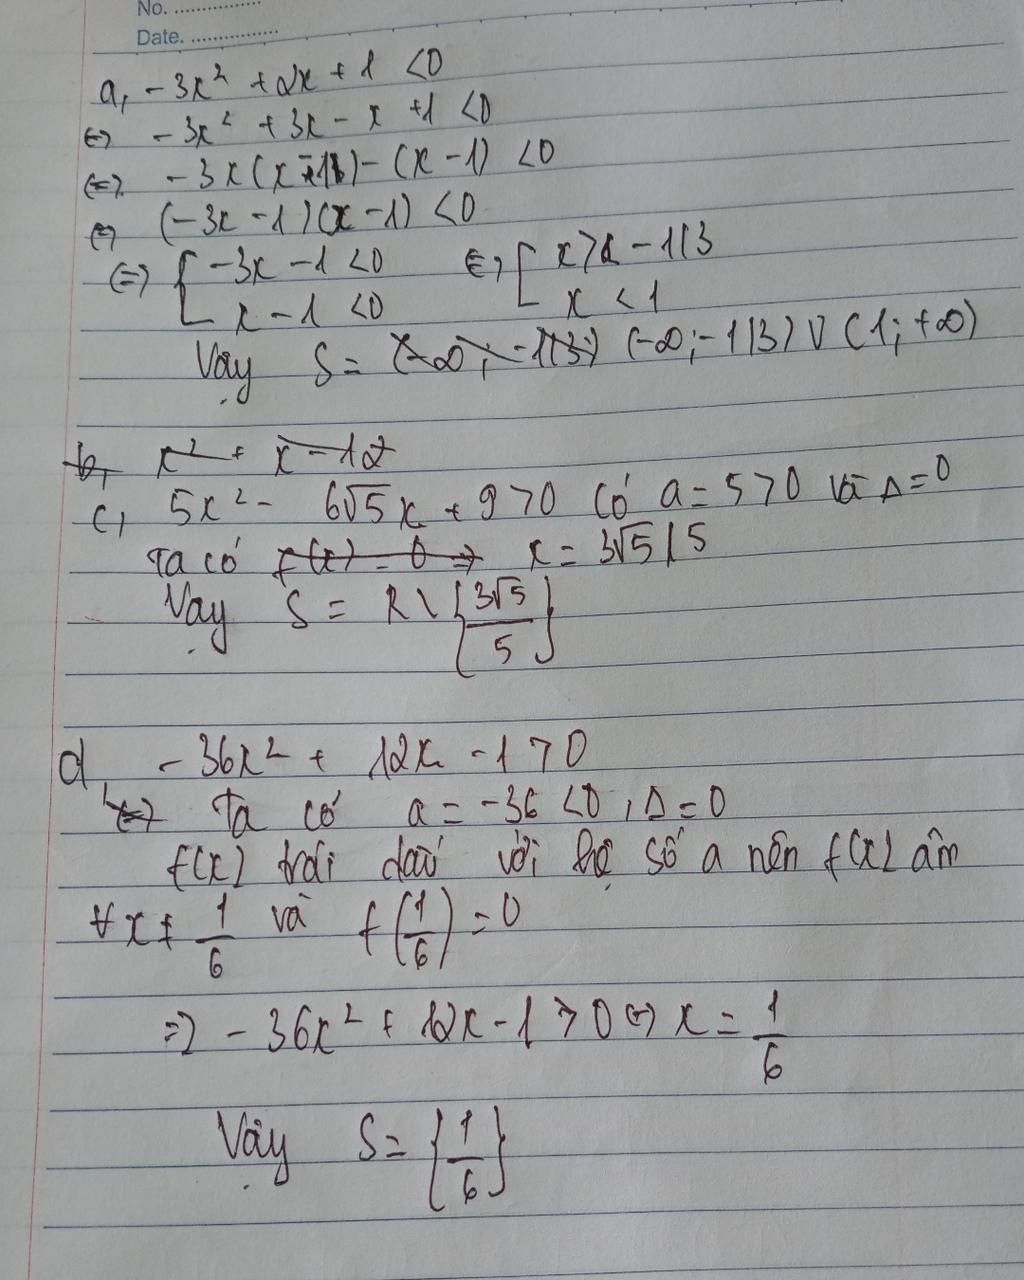 No. ..................
Date. ..................
a, -3x² + 2x + 1 <0
⇔ -3x² + 3x - x +1 <0
⇔ -3x(x-1) - (x-1) <0
⇔ (-3x-1)(x-1) <0
⇔ [ -3x-1 <0 ⇔ [ x > -1/3
x-1 <0 x < 1
Vậy S = (-∞; -1/3) (-∞; -1/3) ∪ (1; +∞)
b, x² + x - 12
c, 5x² - 6√5x + 9 >0 Có a = 5 >0 và Δ=0
Ta có f(x) = 0 ⇒ x = 3√5/5
Vậy S = R \ {3√5/5}
d, -36x² + 12x - 1 ≥ 0
⇔ Ta có a = -36 <0, Δ=0
f(x) trái dấu với hệ số a nên f(x) âm
∀x ≠ 1/6 và f(1/6) = 0
⇒ -36x² + 12x - 1 ≥ 0 ⇔ x = 1/6
Vậy S = {1/6}